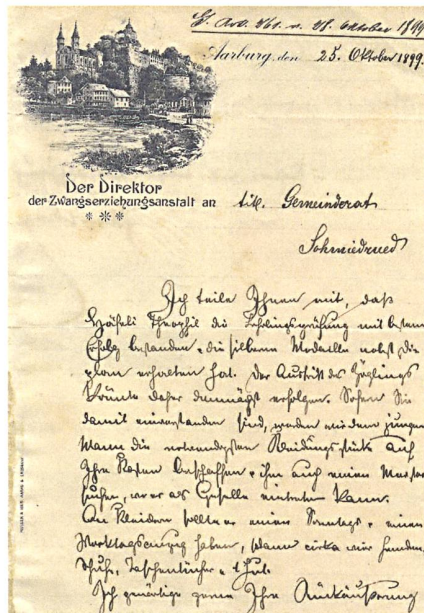 G. Rats. v. 28. Oktober 1899
Aarburg, den 25. Oktober 1899.
Der Direktor
der Zwangserziehungsanstalt an tit. Gemeinderat
Schmiedrued
Ich teile Ihnen mit, daß
Häfeli Theophil die Lehrlingsprüfung mit bestem
Erfolg bestanden, die silberne Medaille nebst Di-
plom erhalten hat. Der Austritt des Zöglings
könnte daher demnächst erfolgen. Sofern Sie
damit einverstanden sind, werden wir dem jungen
Mann die notwendigsten Kleidungsstücke auf
Ihre Kosten beschaffen & ihm auch einen Meister
suchen, wo er als Geselle eintreten kann.
An Kleidern sollte er einen Sonntags- & einen
Werktagsanzug haben, dann cirka vier Hemden,
Schuhe, Taschentücher & 1 Hut.
Ich gewärtige gerne Ihre Rückäußerung